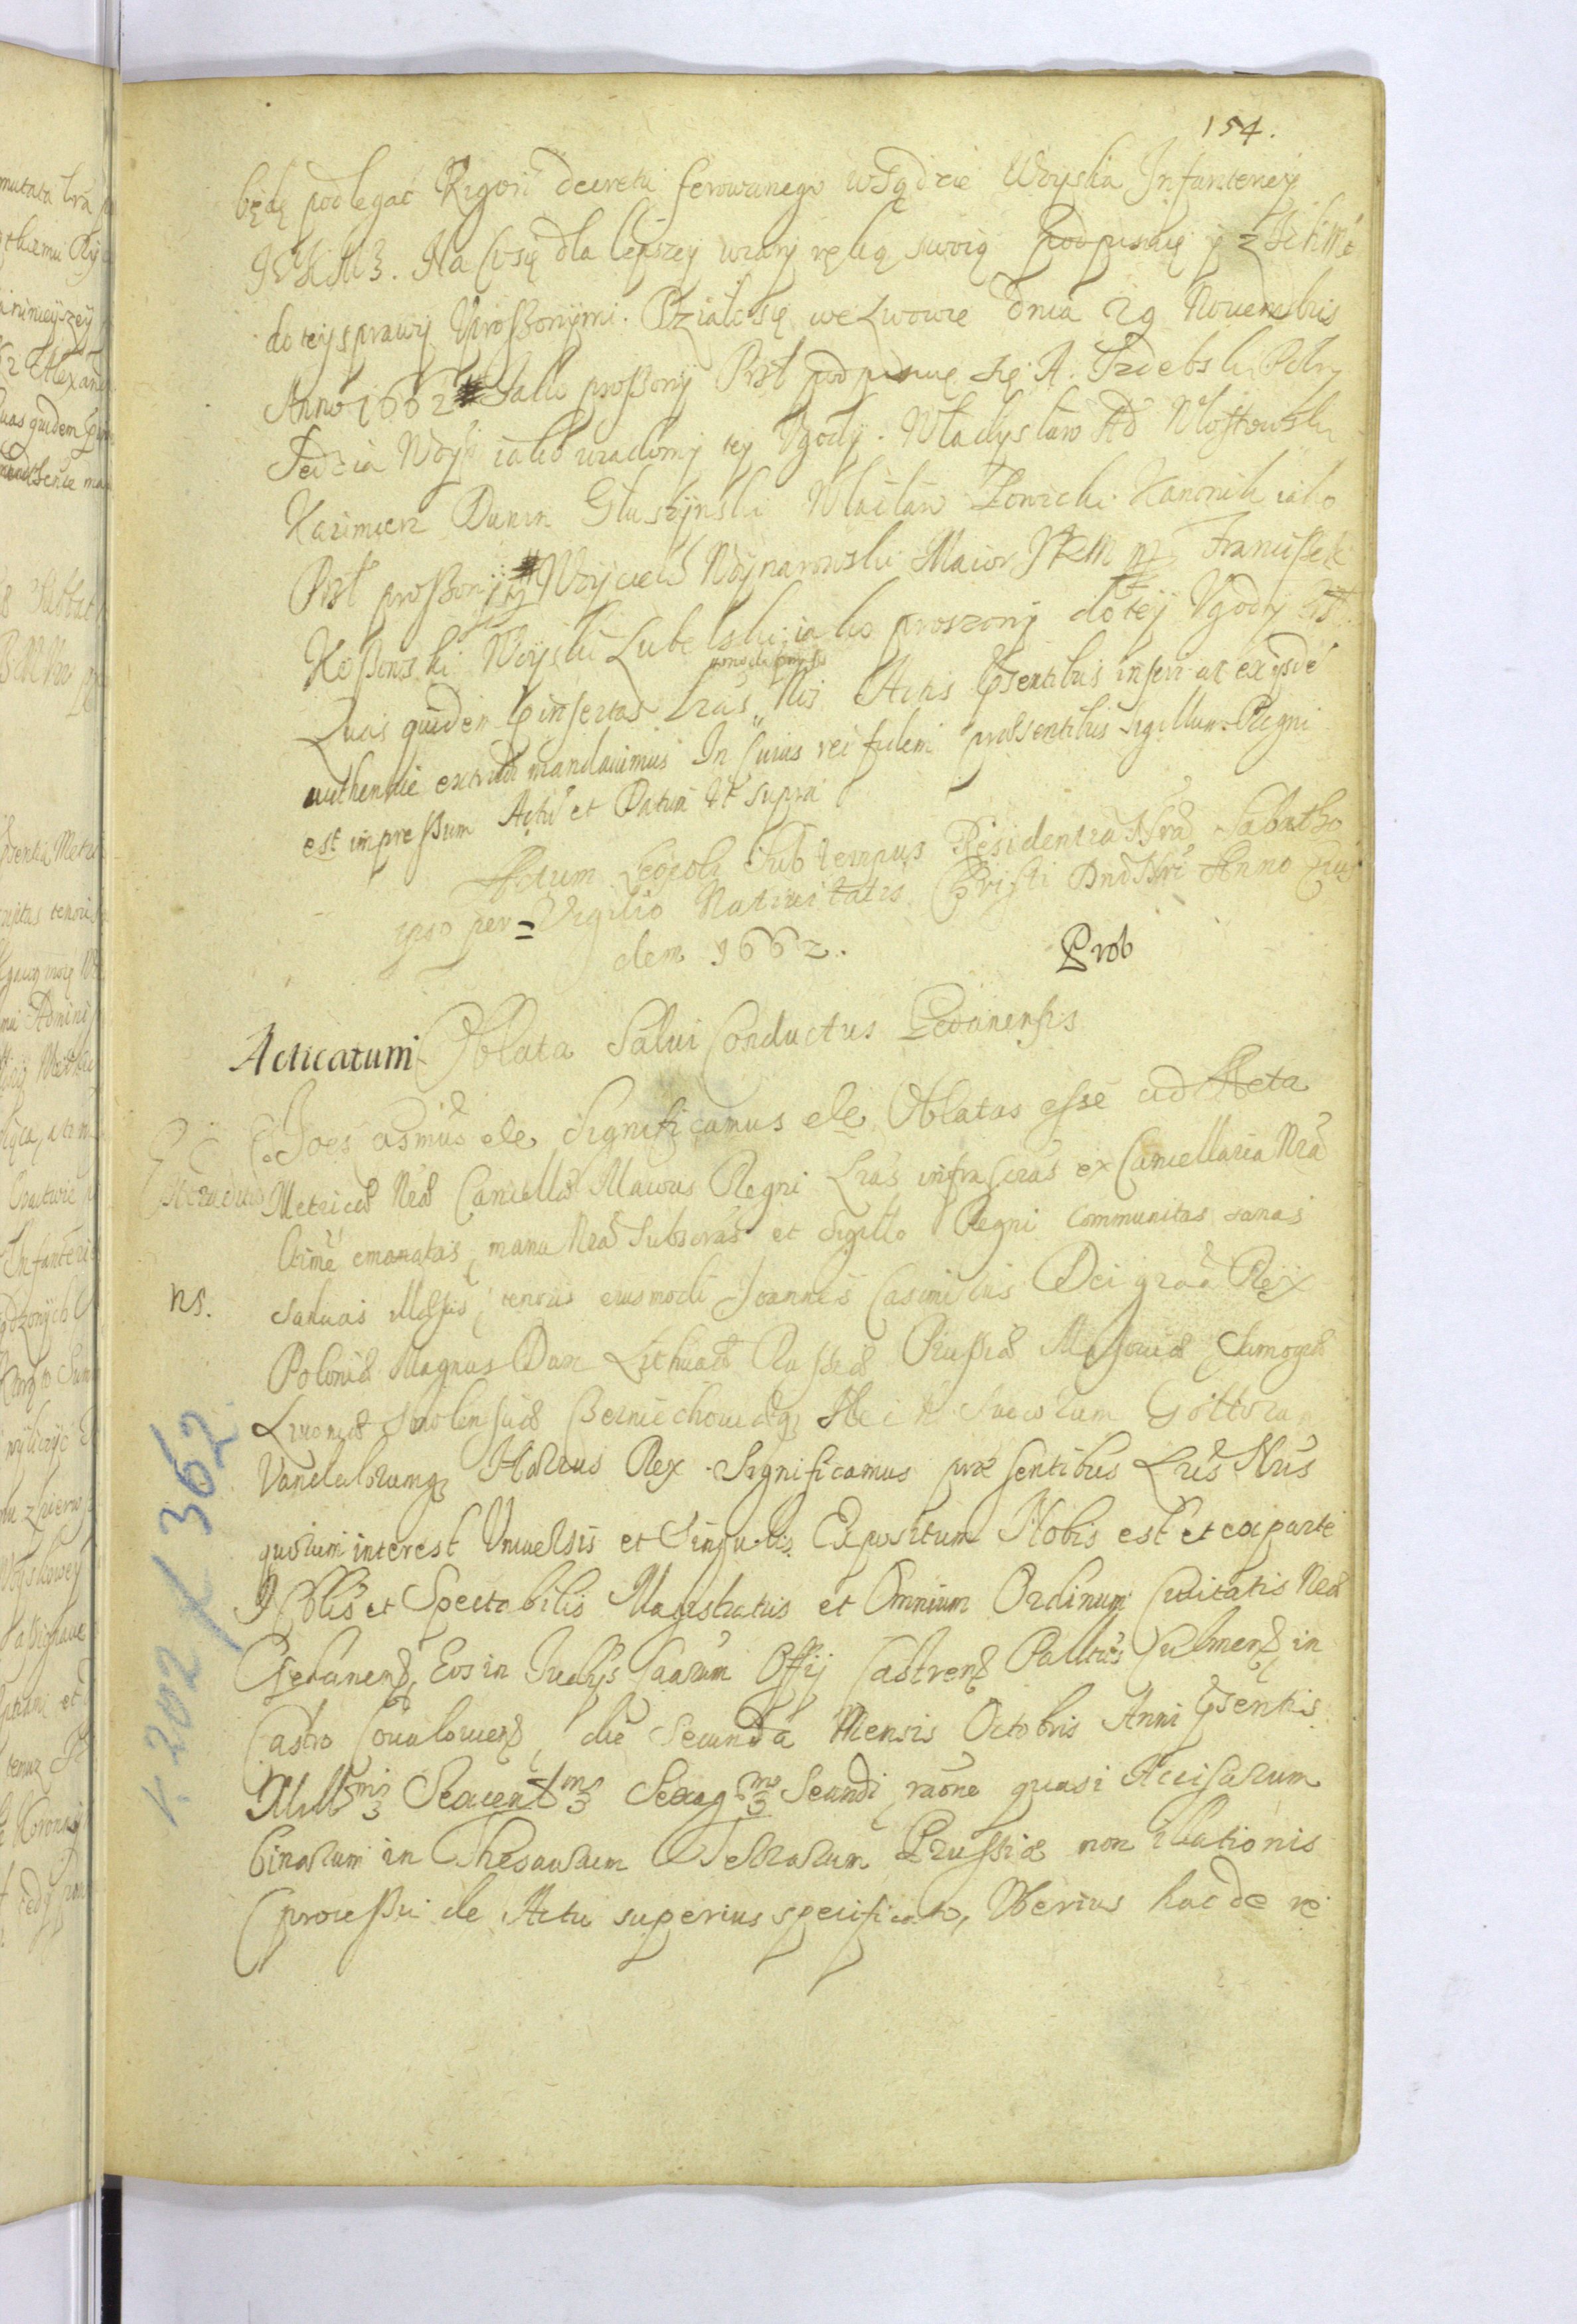 154.
będę podlegać Rigori decretu ferowanego w Sądzie Woyska Infanteriey
JKM. Na Co się dla lepszey wiary ręką swoią podpisuię y z Ichmć
do tey sprawy Uproßonymi. Działo się we Lwowie dnia 29 Nouembris
Anno 1662 Jako proßony Prźł podpisuię się A. Trzebski Polny
Sędzia Woys: iako wiadomy tey Ugody. Władysław Włostowski
Kazimierz Dunin Głuszynski Wacław Łowicki Kanonik iako
Prźł proßony Woyciech Woynarowski Maior JKM Franciszek
Koßowski Woyski Lubelski iako proszony do tey Ugody Prźł.
Quas quidem insertas Lras Nos Actis pntibus inseri ac ex ijsde
authentice extradi mandauimus In Cuius rei fidem præsentibus sigillum Regni
est impreßum Actu et Datum Ut supra
Actum Leopoli Sub tempus Residentiæ Nræ Sabatho
ipso per=Vigilio Natiuitatis Christi Dni Nri Anno Eius
dem 1662.
Prob
Acticatum Oblata Salui Conductus Gedanensis
Joes Casimirus etc Significamus etc Oblatas esse ad Acta
Metrices Nræ Cancellariæ Maioris Regni Lras infrascras ex Cancellaria Nra
ltime emanatas, manu Nra Subscras et Sigillo Regni communitas sanas
ns.
saluas illæsas, tenoris eiusmodi Joannes Casimirus Dei gratia Rex
Poloniæ Magnus Dux Lithuaniæ Russiæ Prussiæ Masouiæ Samogitiæ
Liuoniæ Smolensciæ Czerniechouiæq Nec non Suecorum Gottorum
Vandalorumq Hæreus Rex. Significamus præsentibus Lris Nris
quorum interest Uniuersis et Singulis. Expositum Nobis est et ex parte
Noblis et Spectabilis Magistratus et Omnium Ordinum Ciuitatis Næ
Gedanens, Eos in Iudijs Caarum Offij Castrens Pallatus Culmens, in
Castro Coualouiens, die Secunda Mensis Octobris Anni pntis
Millmi Sexcentmi Sexagmi Secundi, raone quasi Accisarum
binarum in Thesaurum Terrarum Prussiæ non illationis
processu de Actu superius specificato, Uberius hac de re
1. 202 / 362